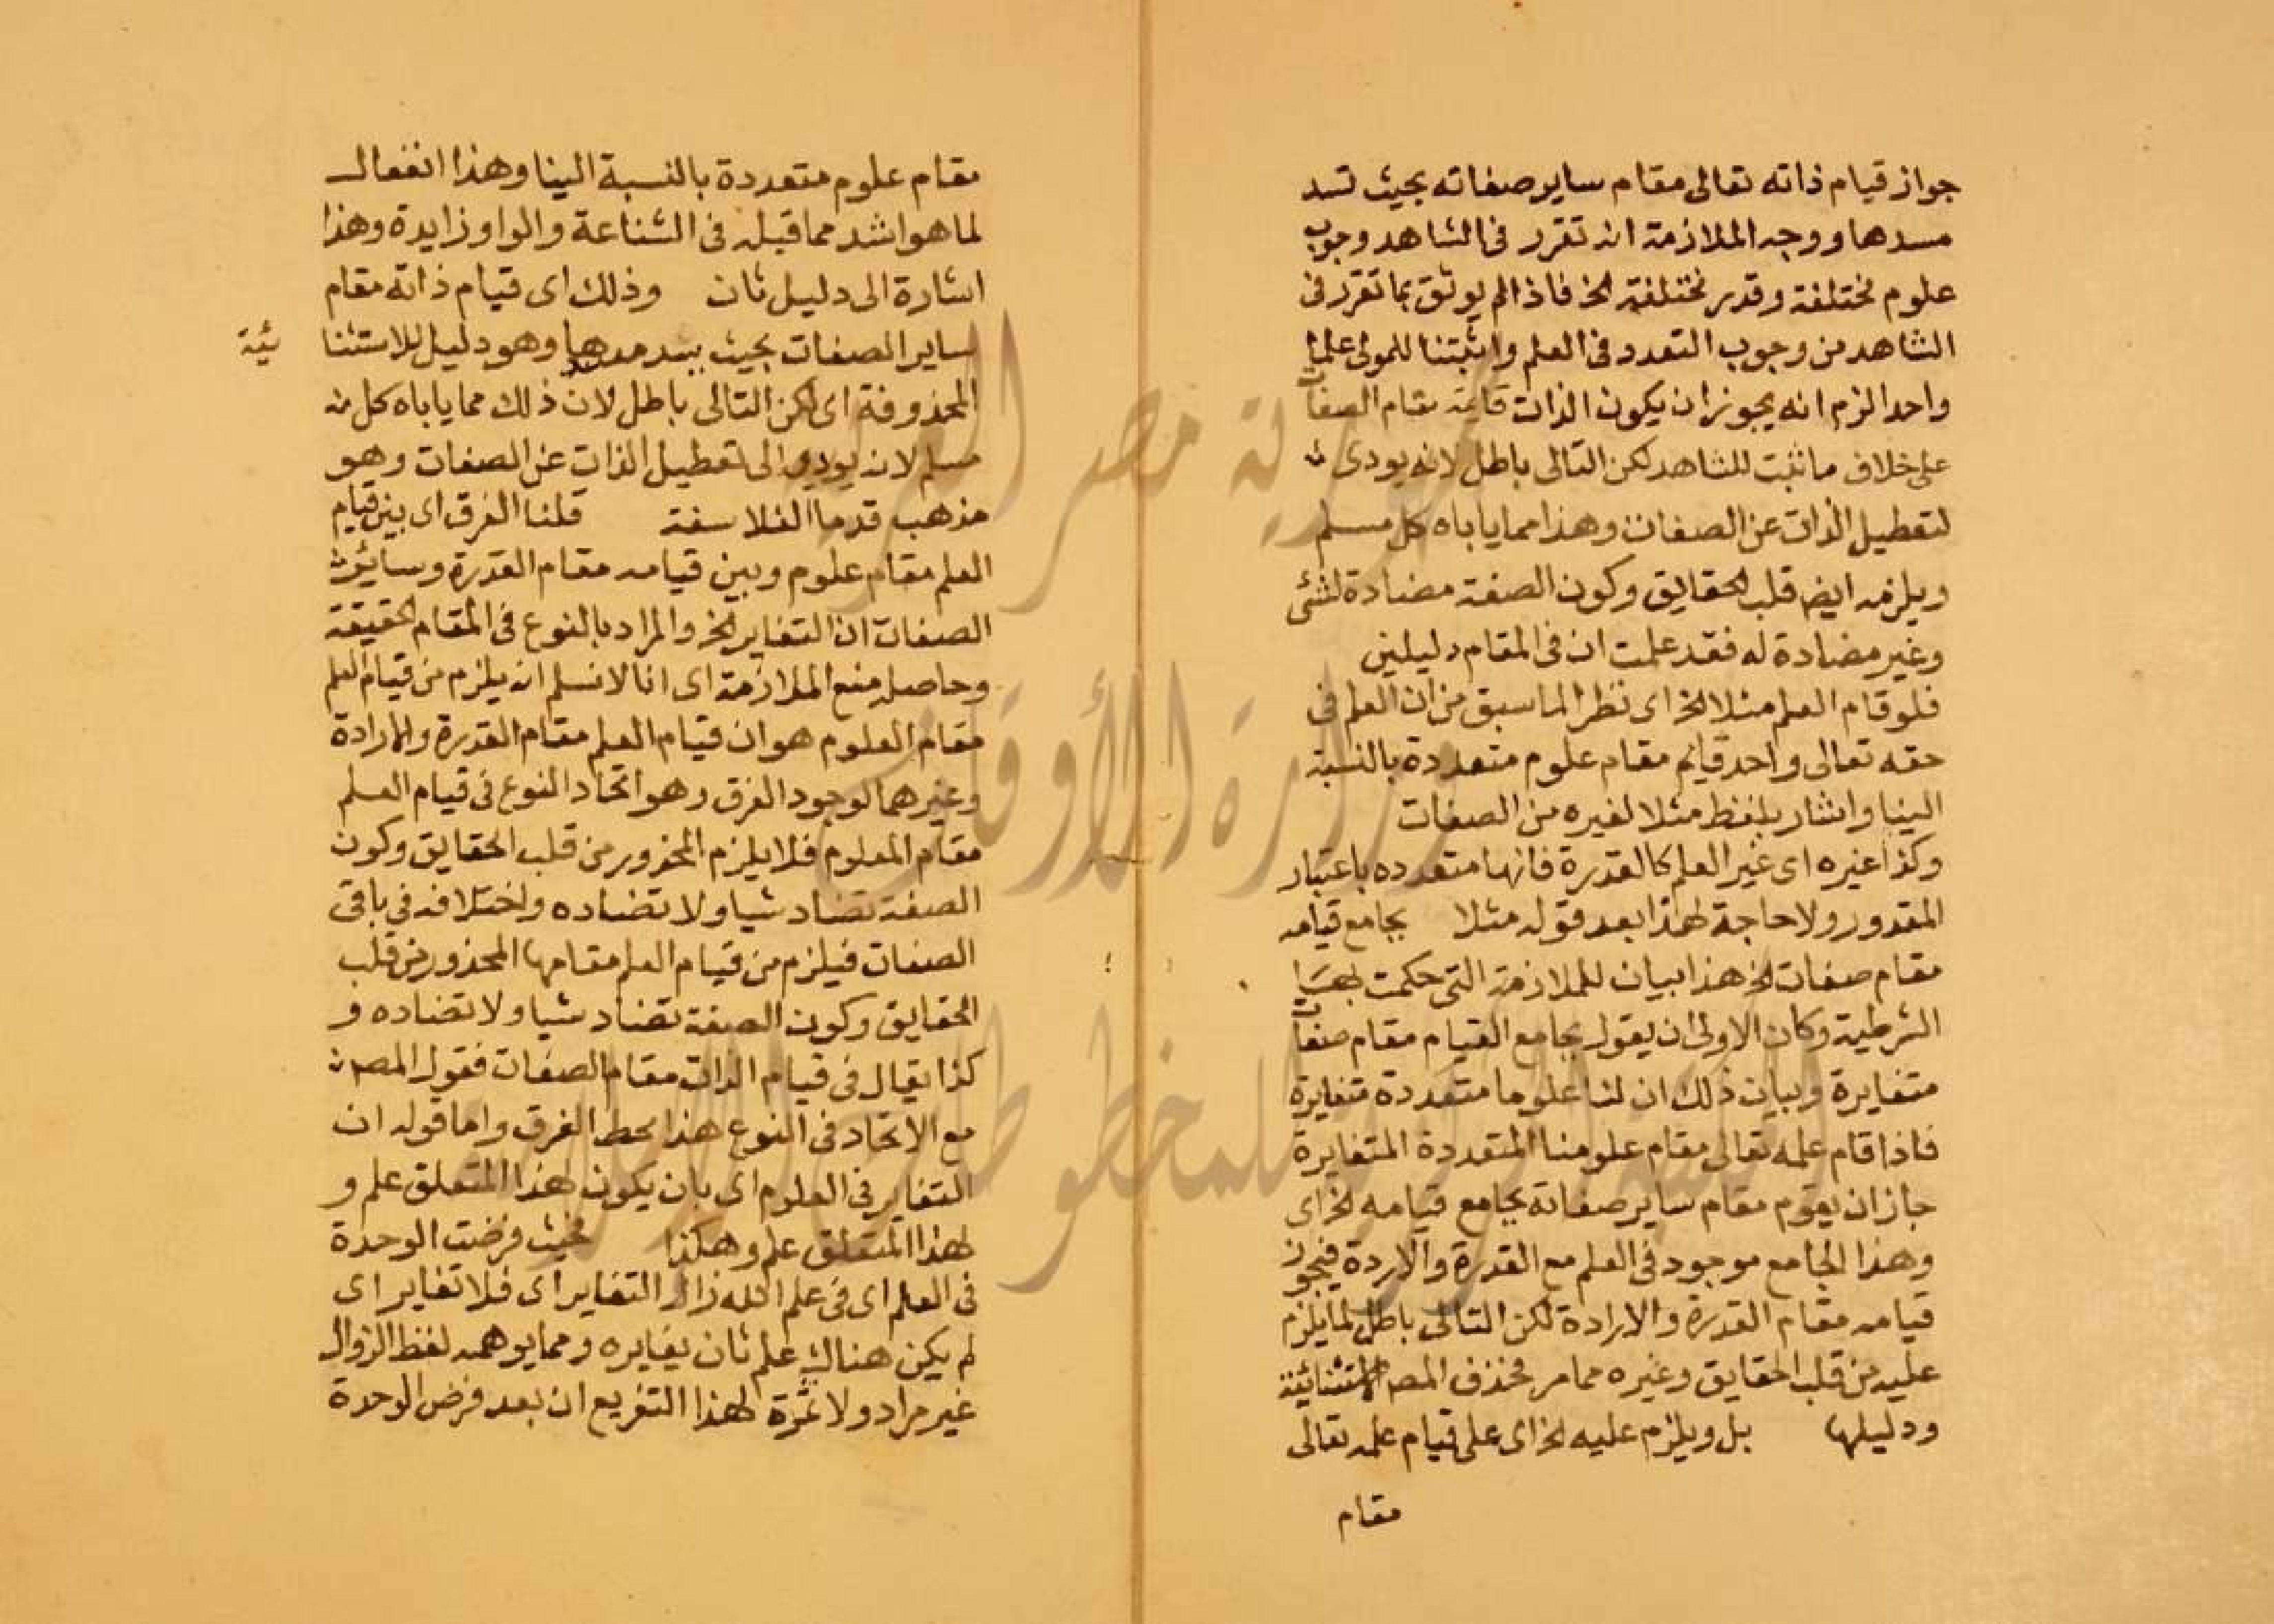 جواز قيام ذاته تعالى مقام ساير صفاته بحيث تسد
مسدها ووجه الملازمة انه تقرر فى الشاهد وجوب
علوم مختلفة وقدر مختلفة الخ فاذا لم يوثق بما تقرر فى
الشاهد من وجوب التعدد فى العلم واثبتنا للمولى علما
واحدا لزم انه يجوز ان يكون الذات قايمة مقام الصفات
على خلاف ما ثبت للشاهد لكن التالى باطل لانه يودى
لتعطيل الذات عن الصفات وهذا مما ياباه كل مسلم
ويلزمه ايضا قلب الحقايق وكون الصفة مضادة لشئ
وغير مضادة له فقد علمت ان فى المقام دليلين
فلو قام العلم مثلا الخ اى نظرا لما سبق من ان العلم فى
حقه تعالى واحد قايم مقام علوم متعددة بالنسبة
الينا واشار بلفظ مثلا لغيره من الصفات
وكذا غيره اى غير العلم كالقدرة فانها متعدده باعتبار
المقدور ولا حاجة لهذا بعد قوله مثلا بجامع قيامه
مقام صفات الخ هذا بيان للملازمة التى حكمت بها
الشرطية وكان الاولى ان يقول بجامع القيام مقام صفات
متغايرة وبيان ذلك ان لنا علوما متعددة متغايرة
فاذا قام علمه تعالى مقام علومنا المتعددة المتغايرة
جاز ان يقوم مقام ساير صفاته بجامع قيامه الخ اى
وهذا الجامع موجود فى العلم مع القدرة والاردة فيجوز
قيامه مقام القدرة والارادة لكن التالى باطل لما يلزم
عليه من قلب الحقايق وغيره مما مر فحذف المص الاستثنائية
ودليلها بل ويلزم عليه الخ اى على قيام علمه تعالى
مقام
مقام علوم متعددة بالنسبة الينا وهذا انتقال
لما هو اشد مما قبله فى الشناعة والواو زايدة وهذا
اشارة الى دليل ثان وذلك اى قيام ذاته مقام
ساير الصفات بحيث يسد مسدها وهو دليل للاستثنا
ئية
المحذوفة اى لكن التالى باطل لان ذلك مما ياباه كل
مسلم لانه يودى الى تعطيل الذات عن الصفات وهو
مذهب قدما الفلاسفة قلنا الفرق اى بين قيام
العلم مقام علوم وبين قيامه مقام القدرة وساير
الصفات ان التغاير الخ والمراد بالنوع فى المقام الحقيقة
وحاصله منع الملازمة اى انا لا نسلم انه يلزم من قيام العلم
مقام العلوم هو ان قيام العلم مقام القدرة والارادة
وغيرهما لوجود الفرق وهو اتحاد النوع فى قيام العلم
مقام العلوم فلا يلزم المحذور من قلب الحقايق وكون
الصفة تضاد شيا ولا تضاده واختلافه فى باقى
الصفات فيلزم من قيام العلم مقامها المحذور من قلب
الحقايق وكون الصفة تضاد شيا ولا تضاده و
كذا يقال فى قيام الذات مقام الصفات فقول المص
مع الاتحاد فى النوع هذا محط الفرق واما قوله ان
التغاير فى العلوم اى بان يكون لهذا المتعلق علم و
لهذا المتعلق علم وهكذا فحيث فرضت الوحدة
فى العلم اى فى علم الله زال التغاير اى فلا تغاير اى
لم يكن هناك علم ثان يغايره ومما يوهمه لفظ الزوال
غير مراد ولا ثمرة لهذا التفريع ان بعد فرض الوحدة